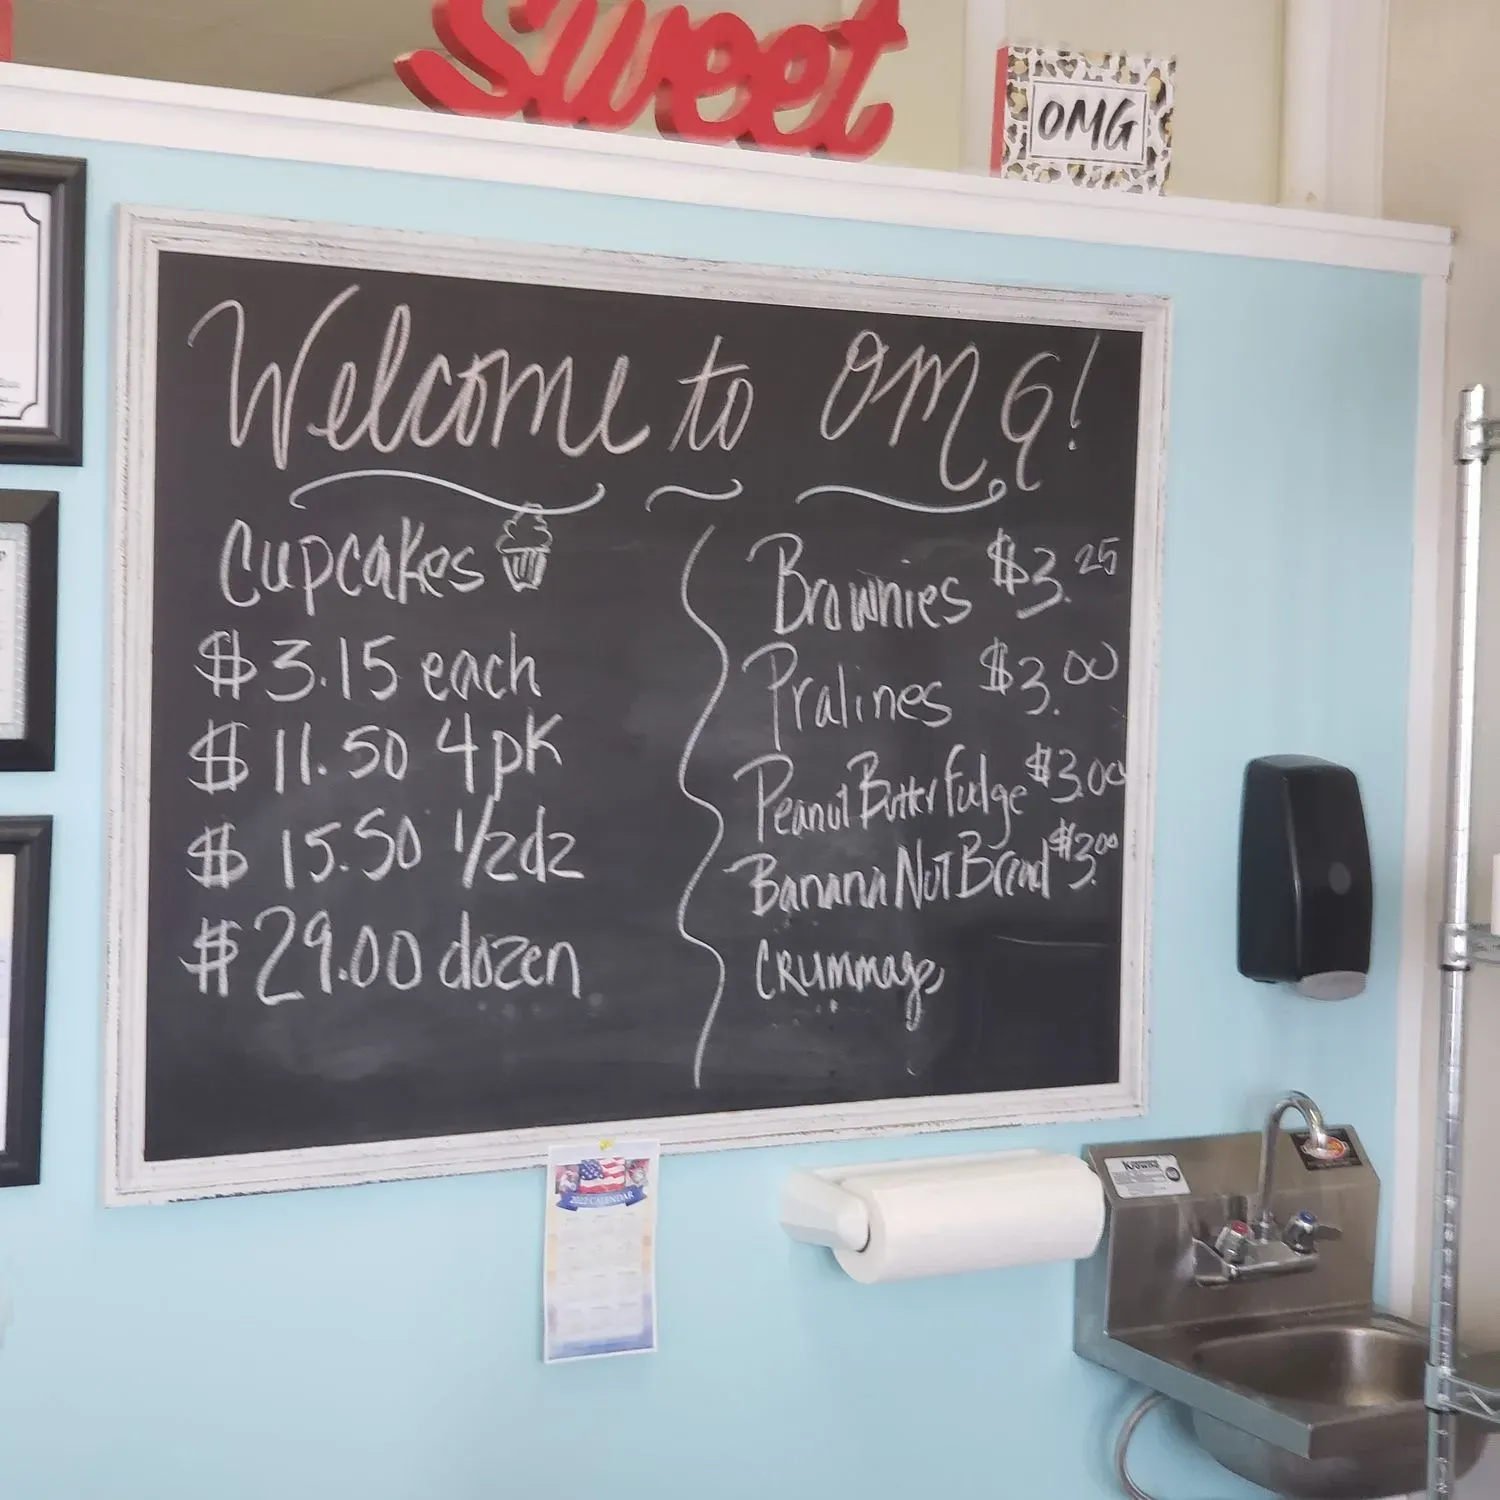 Sweet
OMG
Welcome to OMG!
Cupcakes
$3.15 each
$11.50 4pk
$15.50 1/2dz
$29.00 dozen
Brownies $3.25
Pralines $3.00
Peanut Butter Fudge $3.00
Banana Nut Bread $3.00
2022 CALENDAR